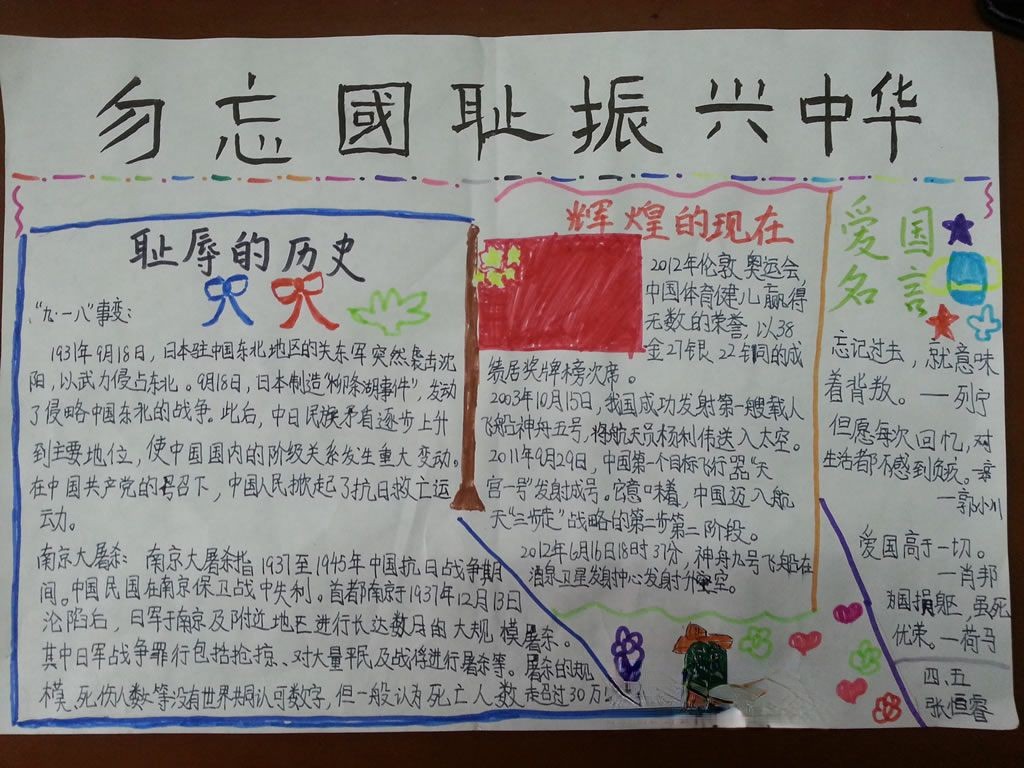 勿忘國耻振兴中华
耻辱的历史
"九·一八"事变:
1931年9月18日,日本驻中国东北地区的关东军突然袭击沈
阳,以武力侵占东北。9月18日,日本制造"柳条湖事件",发动
了侵略中国东北的战争。此后,中日民族矛盾逐步上升
到主要地位,使中国国内的阶级关系发生重大变动。
在中国共产党的号召下,中国人民掀起了抗日救亡运
动。
南京大屠杀: 南京大屠杀指1937至1945年中国抗日战争期
间。中国民国在南京保卫战中失利。首都南京于1937年12月13日
沦陷后,日军于南京及附近地区进行长达数月的大规模屠杀。
其中日军战争罪行包括抢掠、对大量平民及战俘进行屠杀等。屠杀的规
模、死伤人数等没有世界共同认可数字,但一般认为死亡人数超过30万!
辉煌的现在
2012年伦敦奥运会,
中国体育健儿赢得
无数的荣誉,以38
金27银22铜的成
绩居奖牌榜次席。
2003年10月15日,我国成功发射第一艘载人
飞船神舟五号,将航天员杨利伟送入太空。
2011年9月29日,中国第一个目标飞行器"天
宫一号"发射成号。它意味着,中国迈入航
天"三步走"战略的第二步第二阶段。
2012年6月16日18时37分,神舟九号飞船在
酒泉卫星发射中心发射升空。
爱国
名言
忘记过去,就意味
着背叛。—列宁
但愿每次回忆,对
生活都不感到负疚。
—郭小川
爱国高于一切。
—肖邦
为国捐躯,虽死
优荣。—荷马
四、五
张恒睿